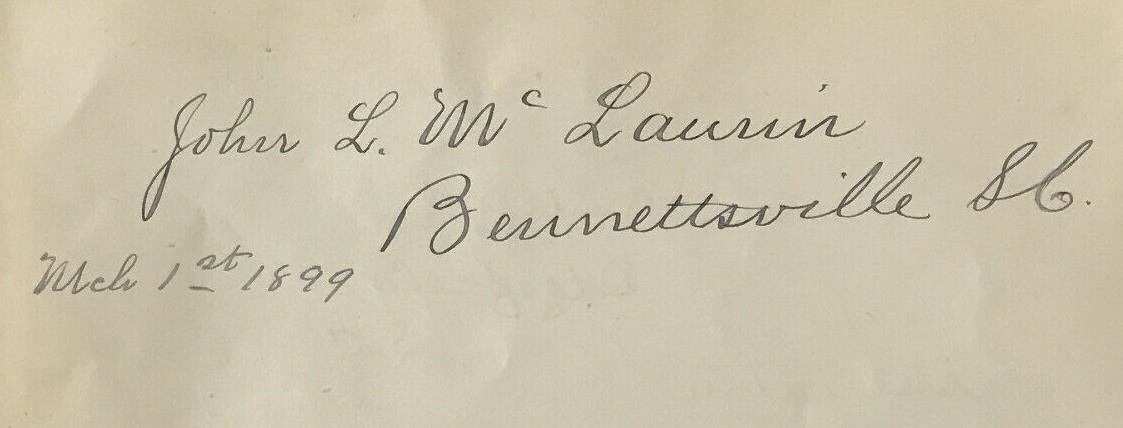 John L. Mc Laurin
Bennettsville S.C.
Mch 1st 1899